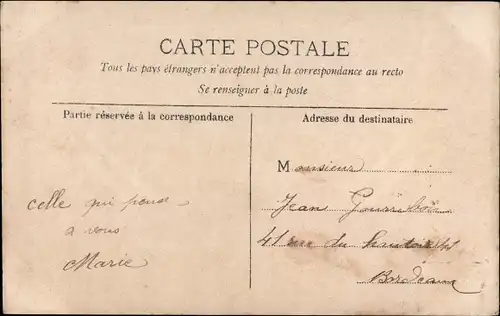 CARTE POSTALE
Tous les pays étrangers n'acceptent pas la correspondance au recto
Se renseigner à la poste
Partie réservée à la correspondance
celle qui pense
a vous
Marie
Adresse du destinataire
Monsieur
Jean
41 rue du
Bordeaux